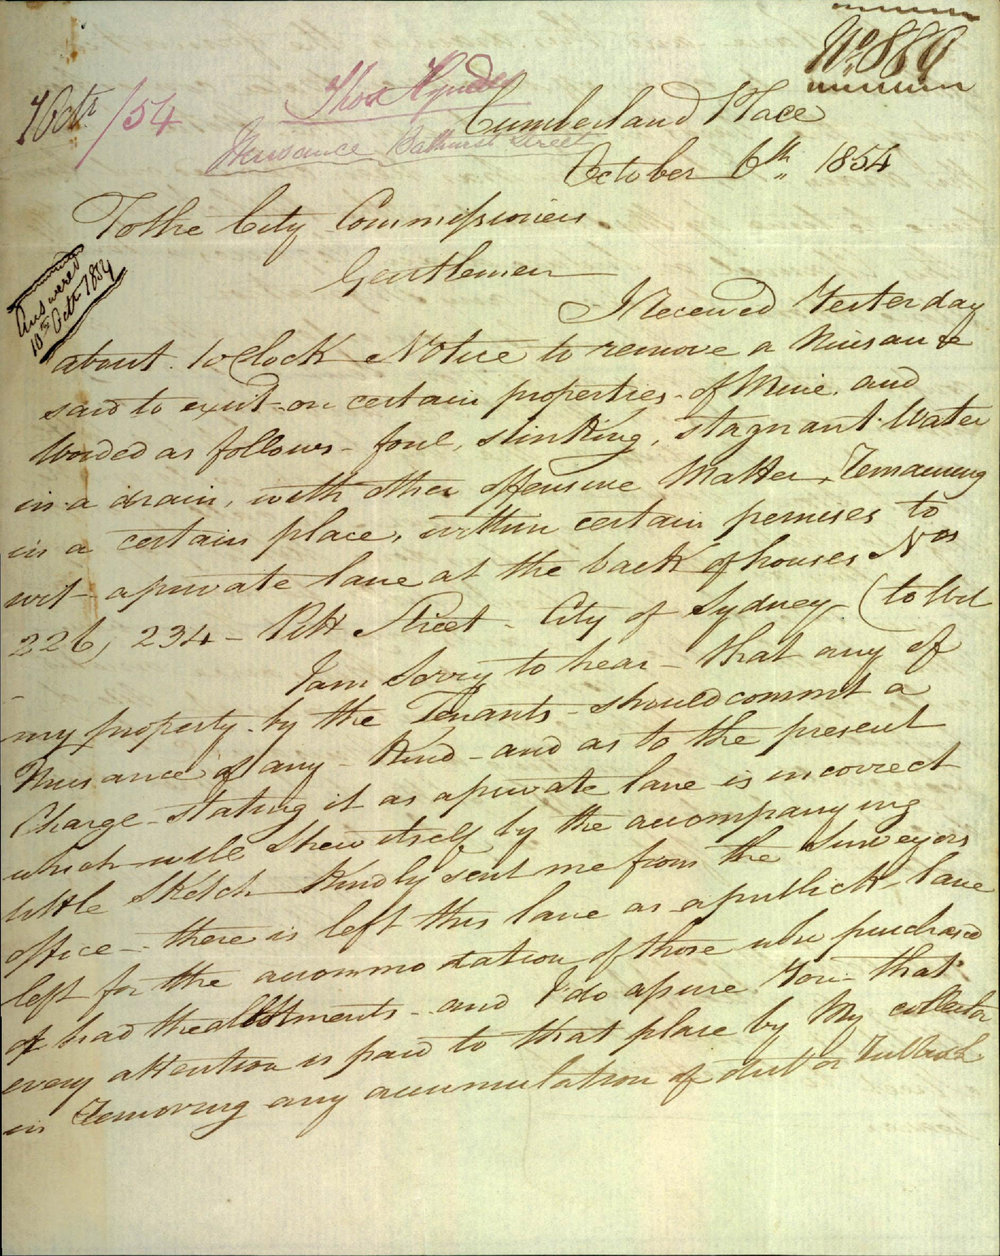 No. 886
7 Octr /54
Thos Hyndes
Nuisance Bathurst Street
Cumberland Place
October 6th 1854
To the City Commissioners
Gentlemen
Answered
10th Octr 1854
I Received Yesterday
about 1 oClock Notice to remove a Nuisance
said to exist on certain properties of Mine and
Worded as follows - foul, stinking, stagnant Water
in a drain, with other offensive Matter, Remaining
in a certain place, within certain premises to
wit - a private lane at the back of houses Nos
226, 234 - Pitt Street - City of Sydney (to Wit
I am Sorry to hear - that any of
my property by the Tenants - should commit a
Nuisance of any - Kind - and as to the present
Charge - stating it as a private lane is incorrect
which will Shew itself by the accompanying
little Sketch Kindly sent me from the Surveyors
office - there is left this lane as a publick lane
left for the accommodation of those who purchased
of had the allottments - and I do assure You that
every attention is paid to that place by My collector
in Removing any accumulation of dirt or Rubbish